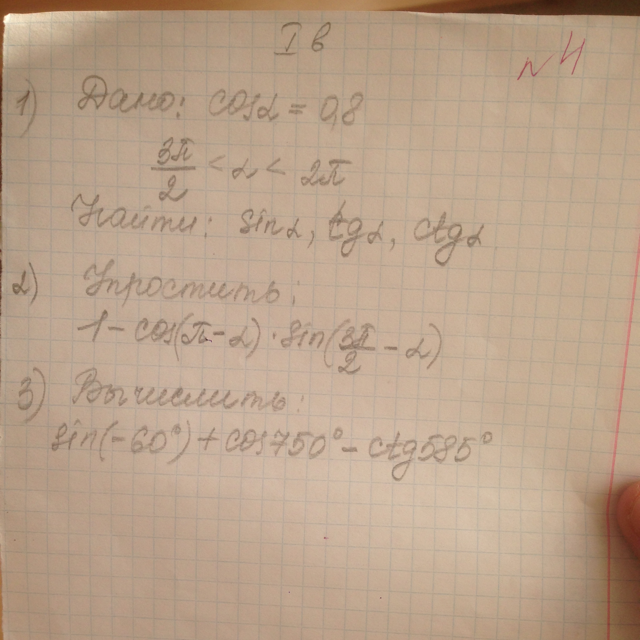 I в
№4
1) Дано: cosα = 0,8
3π/2 < α < 2π
Найти: sinα, tgα, ctgα
2) Упростить:
1 - cos(π - α) · sin(3π/2 - α)
3) Вычислить:
sin(-60°) + cos750° - ctg585°